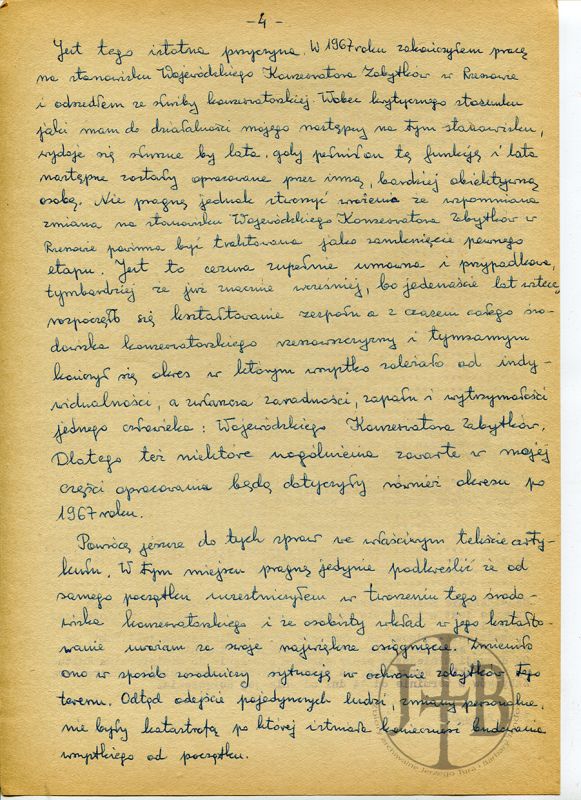 - 4 -
Jest tego istotna przyczyna. W 1967 roku zakończyłem pracę
na stanowisku Wojewódzkiego Konserwatora Zabytków w Rzeszowie
i odszedłem ze służby konserwatorskiej. Wobec krytycznego stosunku
jaki mam do działalności mojego następcy na tym stanowisku,
wydaje się słuszne by lata, gdy pełniłem tę funkcję i lata
następne zostały opracowane przez inną, bardziej obiektywną
osobę. Nie pragnę jednak stworzyć wrażenia że wspomniana
zmiana na stanowisku Wojewódzkiego Konserwatora Zabytków w
Rzeszowie powinna być traktowana jako zamknięcie pewnego
etapu. Jest to cezura zupełnie umowna i przypadkowa,
tymbardziej że już znacznie wcześniej, bo jedenaście lat wstecz,
rozpoczęło się kształtowanie zespołu a z czasem całego śro-
dowiska konserwatorskiego rzeszowszczyzny i tymsamym
kończył się okres w którym wszystko zależało od indy-
widualności, a zwłaszcza zaradności, zapału i wytrzymałości
jednego człowieka: Wojewódzkiego Konserwatora Zabytków.
Dlatego też niektóre uogólnienia zawarte w mojej
części opracowania będą dotyczyły również okresu po
1967 roku.
Powrócę jeszcze do tych spraw we właściwym tekście arty-
kułu. W tym miejscu pragnę jedynie podkreślić że od
samego początku uczestniczyłem w tworzeniu tego środo-
wiska konserwatorskiego i że osobisty wkład w jego kształto-
wanie uważam za swoje największe osiągnięcie. Zmieniło
ono w sposób zasadniczy sytuację w ochronie zabytków tego
terenu. Odtąd odejście pojedynczych ludzi, zmiany personalne,
nie były katastrofą po której istniała konieczność budowania
wszystkiego od początku.